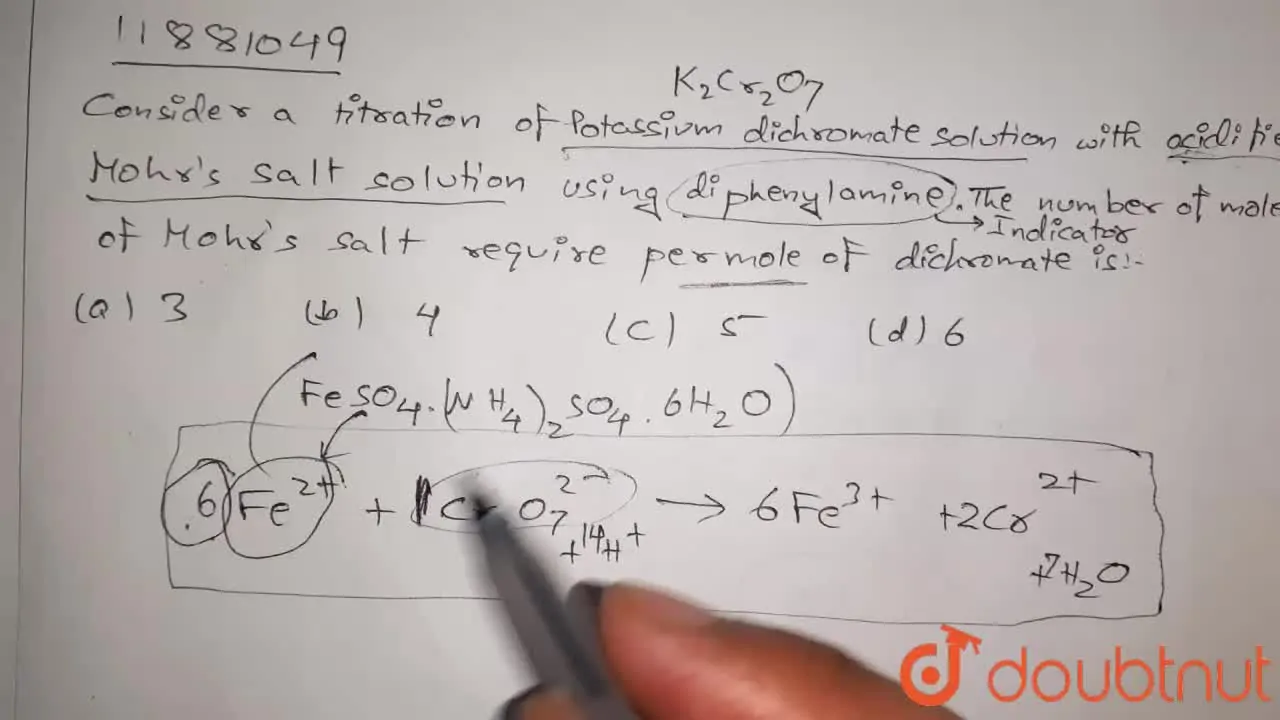 11881049
K₂Cr₂O₇
Consider a titration of Potassium dichromate solution with acidifie
Mohr's salt solution using diphenylamine. The number of mole
→ Indicator
of Mohr's salt require per mole of dichromate is:-
(a) 3 (b) 4 (c) 5 (d) 6
FeSO₄.(NH₄)₂SO₄.6H₂O)
.6Fe²⁺ + 1 Cr O₇²⁻ → 6Fe³⁺ +2Cr²⁺
+14H⁺ +7H₂O
doubtnut